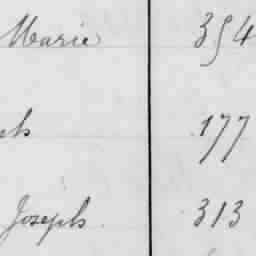 Marie 354
ph 177
Joseph 313